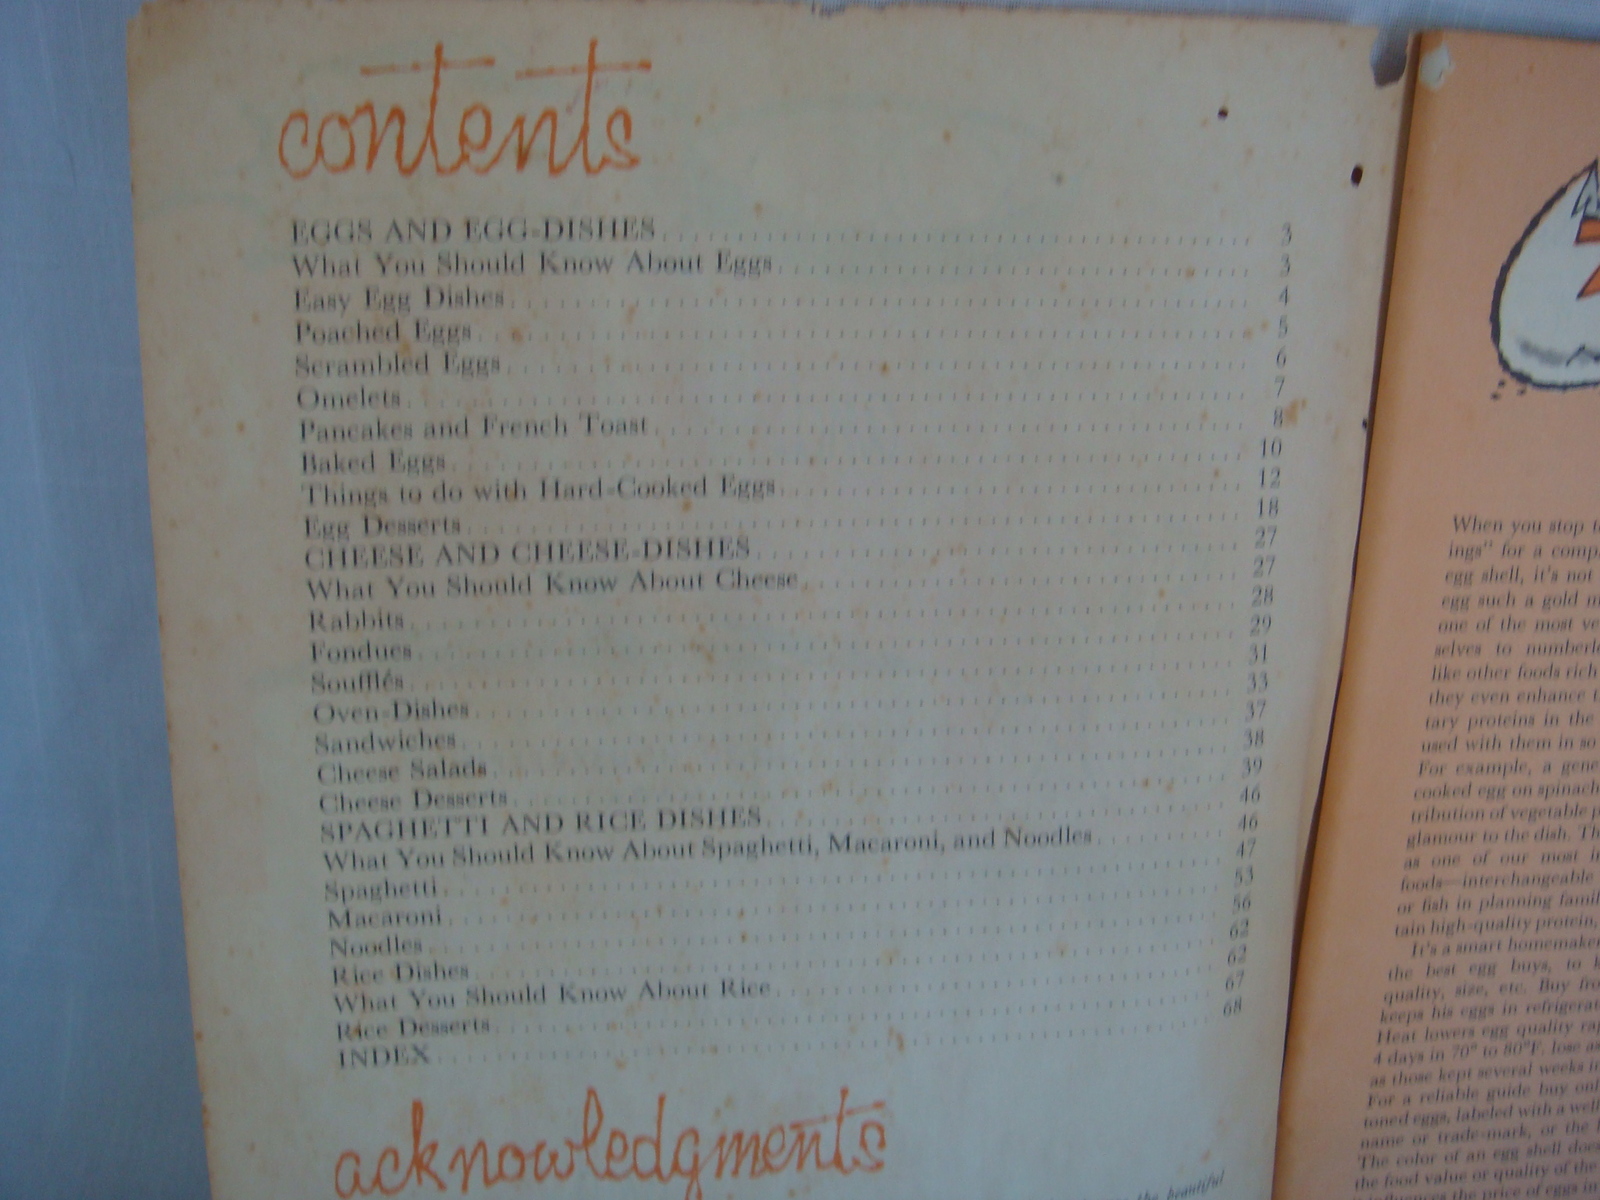 contents
EGGS AND EGG-DISHES 3
What You Should Know About Eggs 3
Easy Egg Dishes 4
Poached Eggs 5
Scrambled Eggs 6
Omelets 7
Pancakes and French Toast 8
Baked Eggs 10
Things to do with Hard-Cooked Eggs 12
Egg Desserts 18
CHEESE AND CHEESE-DISHES 27
What You Should Know About Cheese 27
Rabbits 28
Fondues 29
Soufflés 31
Oven-Dishes 33
Sandwiches 37
Cheese Salads 38
Cheese Desserts 39
SPAGHETTI AND RICE DISHES 46
What You Should Know About Spaghetti, Macaroni, and Noodles 46
Spaghetti 47
Macaroni 53
Noodles 56
Rice Dishes 62
What You Should Know About Rice 62
Rice Desserts 67
INDEX 68
acknowledgments
the beautiful
When you stop
ings" for a
egg shell, it's not
egg such a gold
one of the most
selves to
like other foods rich
they even enhance
tary proteins in the
used with them in so
For example, a
cooked egg on spinach
tribution of vegetable
glamour to the dish.
as one of our most
foods—interchangeable
or fish in planning
tain high-quality protein,
It's a smart homemaker
the best egg buys, to
quality, size, etc. Buy
keeps his eggs in
Heat lowers egg quality
4 days in 70° to 80°F. lose
as those kept several weeks
For a reliable guide buy
toned eggs, labeled with a
name or trade-mark, or the
The color of an egg shell
the food value or quality of the
the price of eggs in